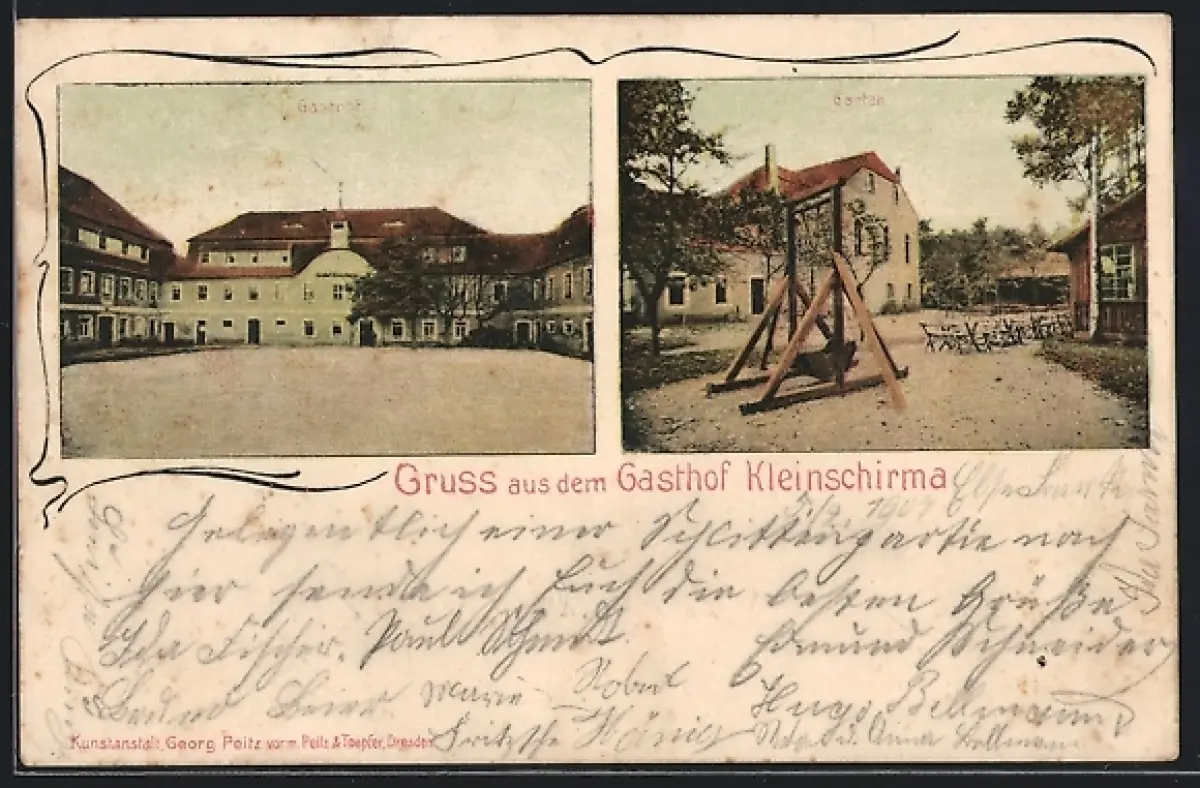 Gasthof
Garten
Gruss aus dem Gasthof Kleinschirma
1904
Gelegentlich einer Schlittenpartie nach
hier sende ich Euch die besten Grüße
Ida Fischer. Paul Schmidt Edmund Schneider
Marie Robert Hugo Bellmann
Fritzsche König u. Anna Bellmann
Kunstanstalt, Georg Peitz vorm. Peitz & Toepfer, Dresden